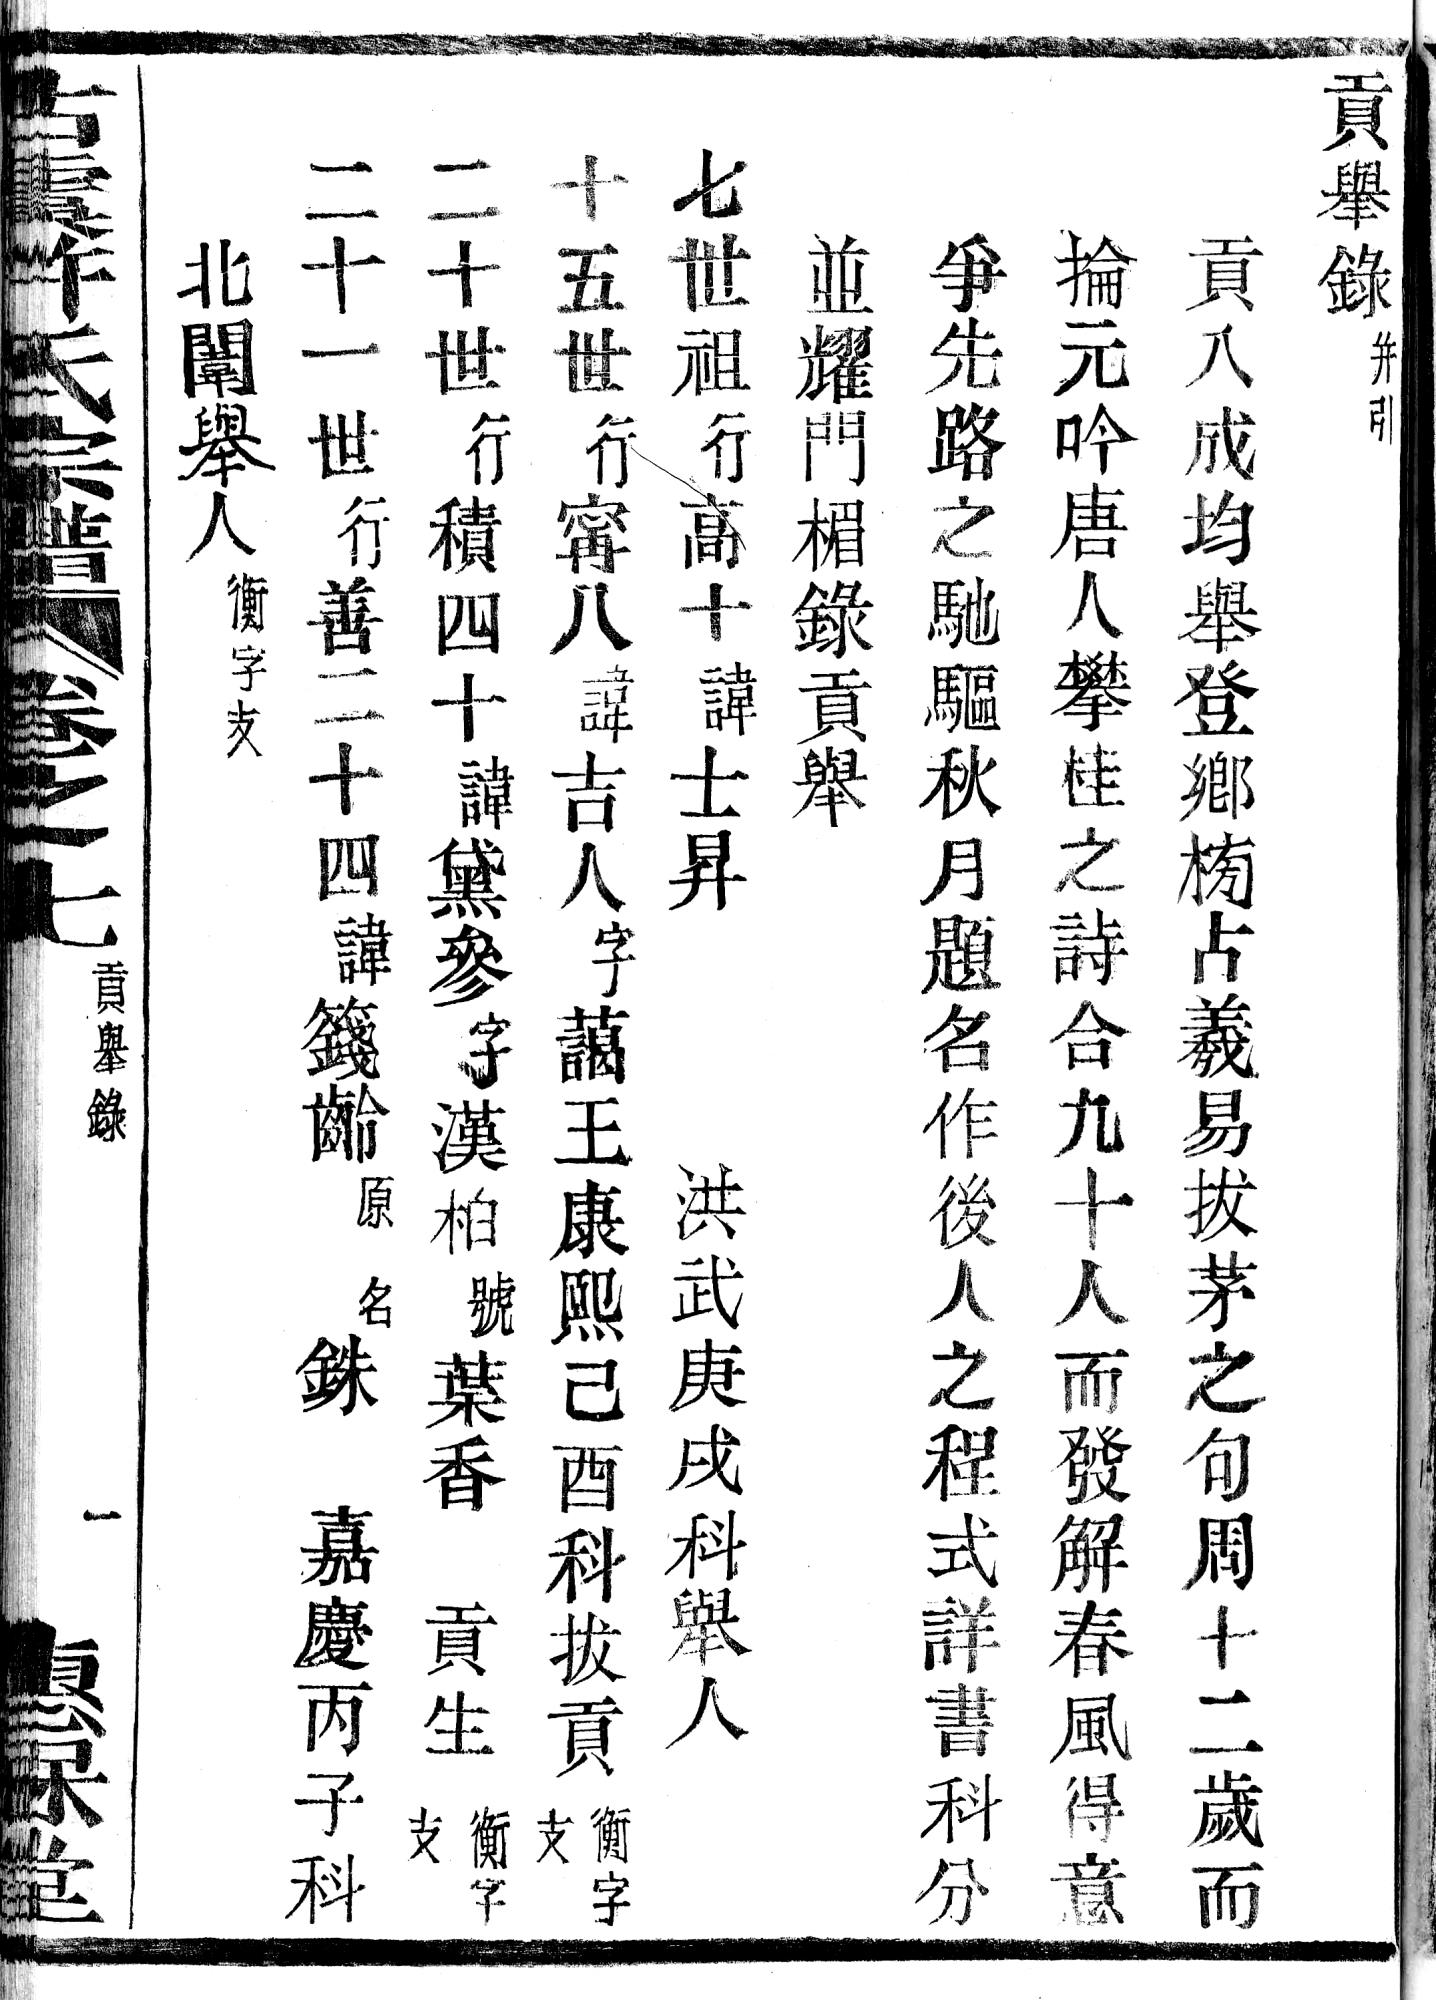 貢舉錄 并引
貢入成均舉登鄉榜占羲易拔茅之句周十二歲而
掄元吟唐人攀桂之詩合九十人而發解春風得意
爭先路之馳驅秋月題名作後人之程式詳書科分
並耀門楣錄貢舉
七世祖行高十諱士昇 洪武庚戌科舉人
十五世行甯八諱吉人字藹王康熙己酉科拔貢 衡字支
二十世行積四十諱黛參字漢柏號葉香 貢生 衡字支
二十一世行善二十四諱籛齡原名銖 嘉慶丙子科
北闈舉人 衡字支
氏宗譜 卷之七 貢舉錄 一 堂